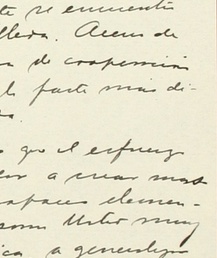 te se encuentra
llera. Acerca de
de cooperación
la parte mas di-
que el esfuerzo
a crear mas
capaces elemen-
como Usted muy
a generaliza